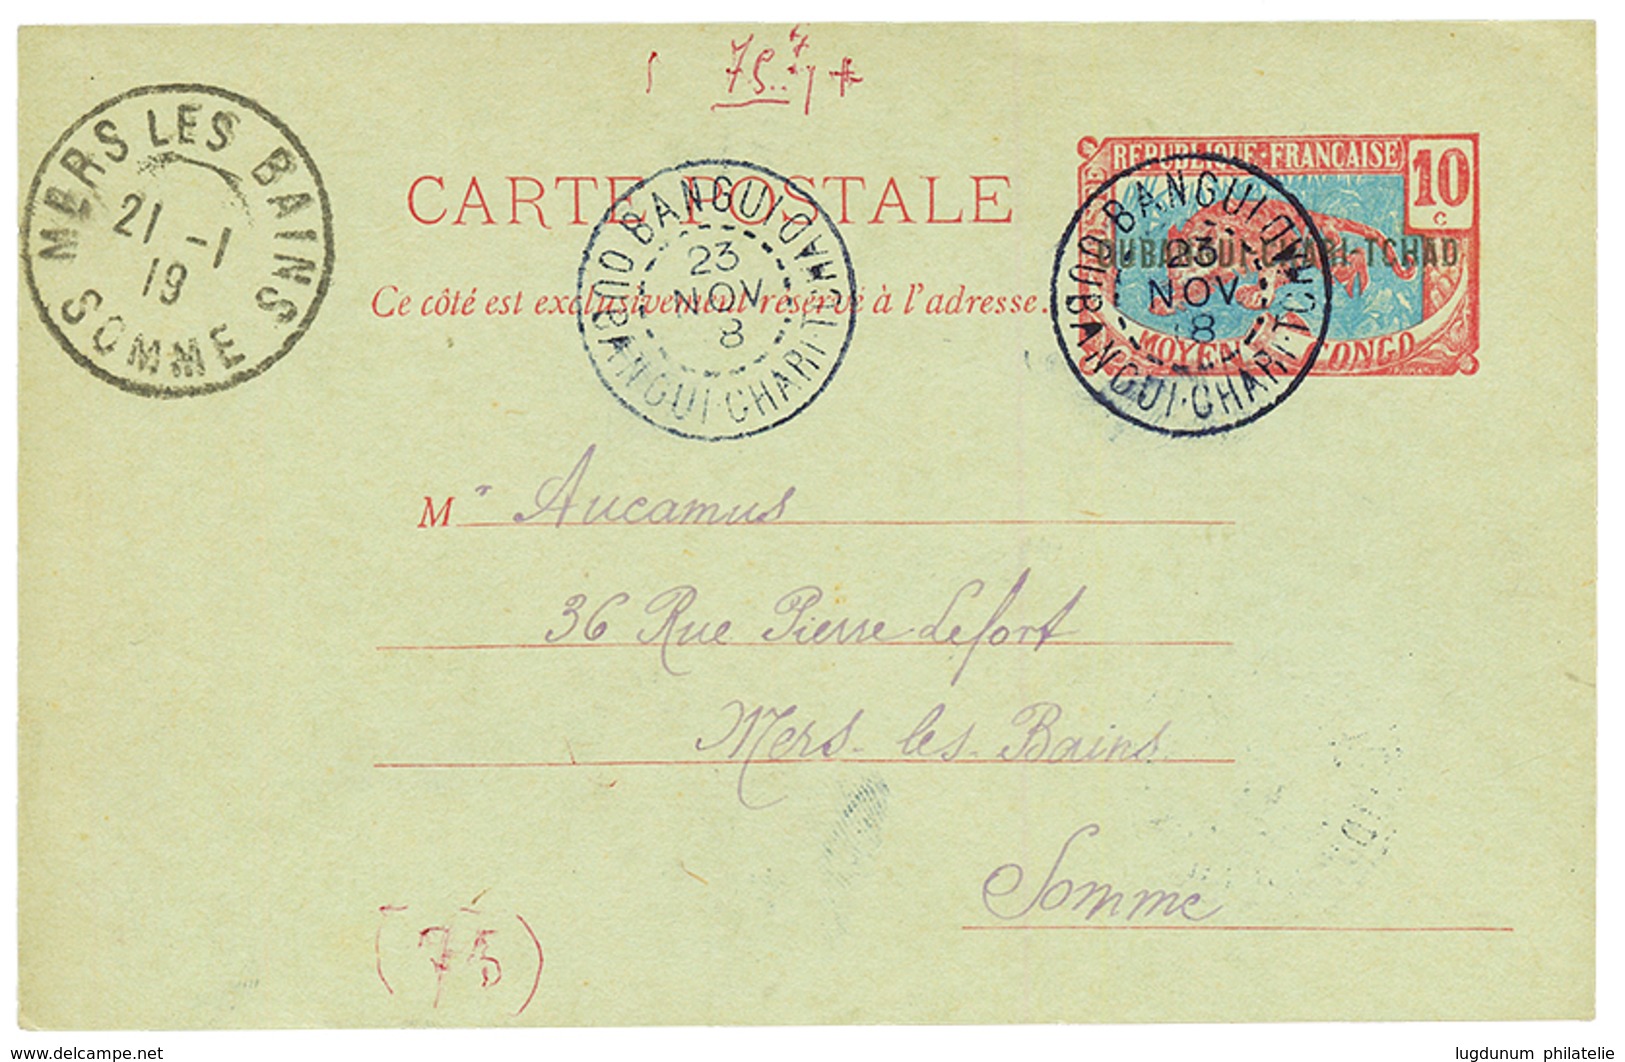 75
CARTE POSTALE
Ce côté est exclusivement réservé à l'adresse.
MERS LES BAINS
21 -1
19
SOMME
BANGUI
23
NOV
8
OUBANGUI·CHARI·TCHAD
REPUBLIQUE·FRANÇAISE
10
c
POSTES
OUBANGUI-CHARI-TCHAD
MOYEN CONGO
BANGUI
23
NOV
8
OUBANGUI·CHARI·TCHAD
Mr Aucamus
36 Rue Pierre Lefort
Mers-les-Bains
Somme
(75)
www.delcampe.net
lugdunum philatelie